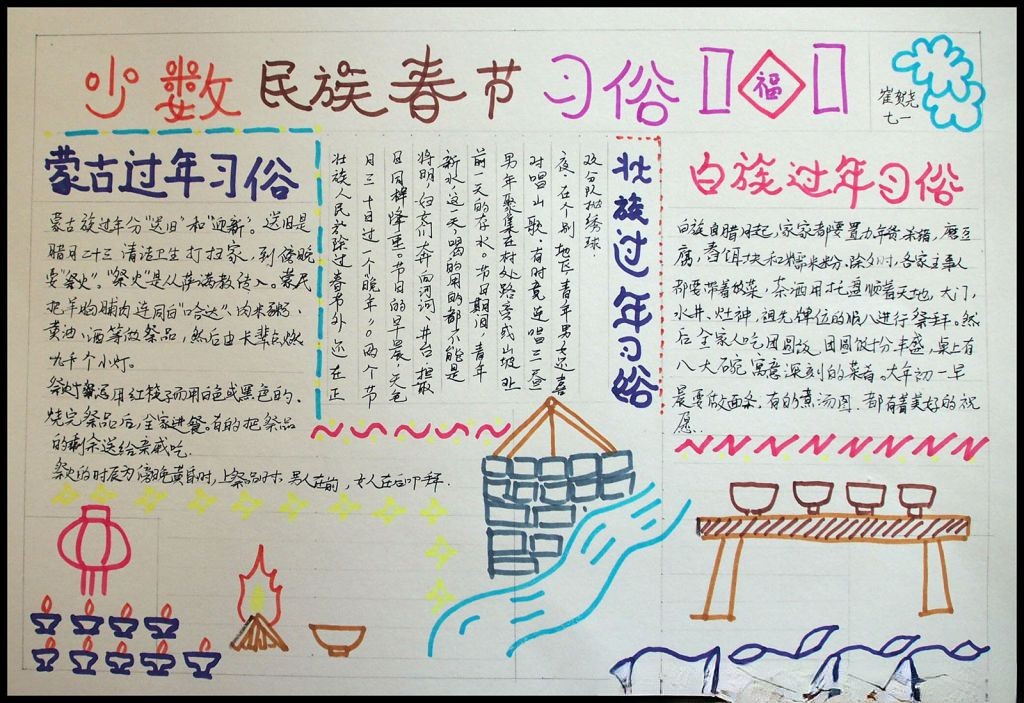 少数民族春节习俗
福
崔贺尧
七一
蒙古过年习俗
蒙古族过年分“送旧”和“迎新”。送旧是
腊月二十三清洁卫生打扫家,到傍晚
要“祭火”。“祭火”是从萨满教传入。蒙民
把羊胸脯肉连同白“哈达”、肉米粥、
黄油、酒等做祭品,然后由长辈点燃
九千个小灯。
用红筷子而用白色或黑色的、
烧完祭品后,全家进餐。有的把祭品
的剩余送给亲戚吃.
祭火的时辰为傍晚黄昏时,上祭品时,男人在前,女人在后叩拜.
壮族过年习俗
欢分队抛绣球.
夜.在个别地区,青年男女还喜
对唱山歌.有时竟连唱三昼
男年聚集在村处路旁或山坡上
前一天的存水。节日期间青年
新水,这一天,喝的用的都不能是
将明,妇女们大奔向河河、井台担取
日同样隆重。节日的早晨,天色
月三十日过“个晚年”。两个节
壮族人民於除过春节外还在正
白族过年习俗
白族自腊月起,家家都要置办年货杀猪,磨豆
腐,舂饵块和糯米粉.除夕时,各家主事人
都要带着饭菜,茶酒用托盘顺着天地,大门,
水井、灶神,祖先牌位的顺八进行祭拜.然
后全家人吃团圆饭.团圆饭十分丰盛,桌上有
八大碗寓意深刻的菜肴。大年初一早
晨要做面条,有的煮汤圆.都有着美好的祝
愿.